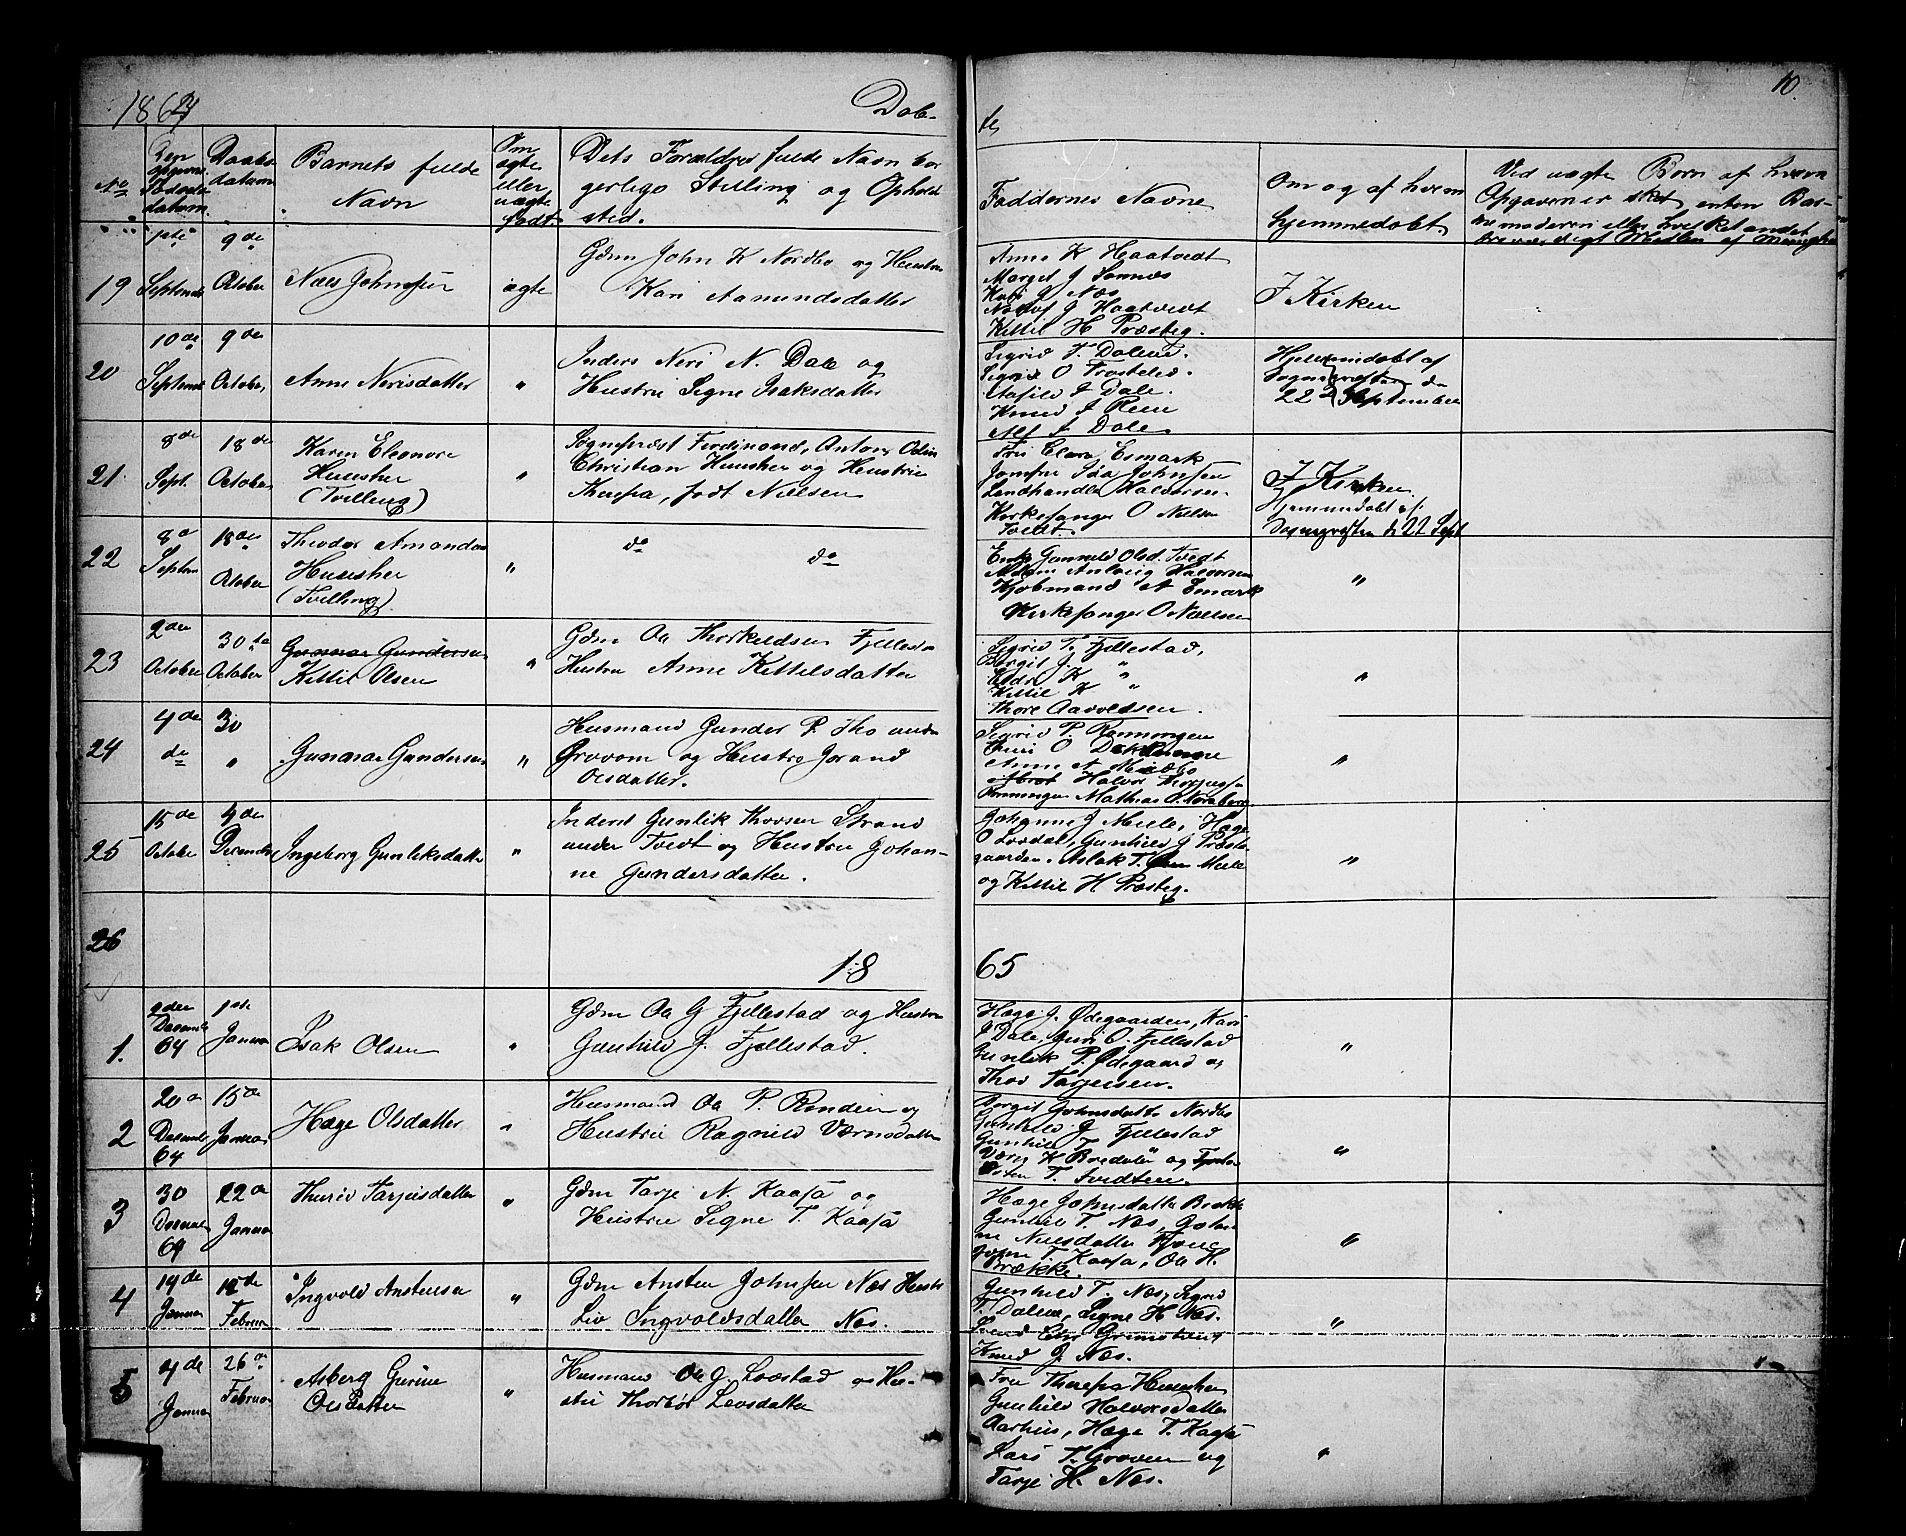 1864
Døb-
te,
10.
No
Daabs-
datum
Barnets fulde
Navn
Om
ægte
eller
uægte
født.
Dets Forældres fulde Navn bor
gerlige Stilling og Opholds
sted.
Faddernes Navne
Om og af hvem
hjemmedøbt.
Ved uægte Børn af hvem
Opgaven er sket enten Bar-
nemoderen eller hvilket andet
19
1ste
Septembr
9de
October
Niels Johnsen
ægte
Gdm John K Nordbo og Hustru
Kari Aamundsdatter
Anne K Haatvedt
Margit J Sannes
Kari J Næs
Notluf G Haatvedt
Kittil H Præsteg.
I Kirken
20
10de
Septemb
9de
October,
Anne Nerisdatter
"
Inders Neri N. Dale og
Hustrue Signe Isaksdatter
Sigrid T. Dalene.
Sigrid O
J Dale.
Knud J Reen
Alf J Dale.
Hjemmedøbt af
22de September
21
8de
Sept.
18de
October
Karen Eleonore
Huusher
(Tvilling)
"
Sognepræst Ferdinand, Anton, Odin
Christian Huusher og Hustrue
Theresa, født Nielsen
Fru Clara Esmark
Jomfru Ida Johnsen
Landhandler Halvorsen
Kirkesanger O Nielsen
Tvedt.
I Kirken
Hjemmedøbt af
d 22 Sept
22
8de
Septem
18de
October
Theodor Amandus
Huusher
(Tvilling)
"
do do
Enke Gunnild Olsd. Tvedt
Madam Aslaug Halvorsen
Kjøbmand A Esmark
Kirkesanger O Nielsen
"
23
2den
October
30te
October
Gunnar Gundersen
Kittil Olsen
"
Gdm Ole Thorkildsen Fjellestad
Hustru Anne Kittilsdatter
Sigrid T. Fjellestad,
Bergit J. "
K "
Kittil K "
Thore Aavoldsen.
"
24
4de
do
30
"
Gunnar Gundersen
"
Husmand Gunder P. Tho under
Grovom og Hustru Jorand
Olsdatter.
Sigrid P. Rønningen
O
Anne A
Halvor
Rønningen Mathias O. Noraberg
"
25
15de
October
4de
Decembr
Ingeborg Gunleksdatter
"
Inderst Gunlik Thorsen Strand
under Tvedt og Hustru Johan-
ne Gundersdatter.
Johanne J Miele, Hæge
O Lovdal, Gunhild J Præste
gaarden. Aslak T. Miele
og Kittil H Præsteg.
"
26
18
65
1.
9den
Decemb
64
1ste
Januar
Isak Olsen
"
Gdm Ole G Fjellestad og Hustru
Gunhild J. Fjellestad.
Hæge J. Ødegaarden, Kari
J Dale, Guri O. Fjellestad
Gunlik P. Ødegaard og
Thor Tarjeisen.
"
2
20de
Decemb
64
15de
Januar
Hæge Olsdatter
"
Husmand Ole P. Rønden og
Hustru Ragnild Værnsdatter
Bergit Johnsdatter Nordbo
Gunhild J Fjellestad
Gunhild T
Værn K Bredalo og
T. Tvedten.
"
3
30
Decemb
64
22de
Januar
Thurid Tarjeisdatter
"
Gdm Tarje N. Kaasa og
Hustru Signe T. Kaasa
Hæge Johnsdatter Brække
Gunhild T. Næs, Johan
ne Nielsdatter
John T. Kaasa, Ole H.
Brække.
"
4
14de
Januar
12de
Februar
Ingvold Anstensen
"
Gdm Ansten Johnsen Næs Hustr
Liv Ingvoldsdatter Næs.
Gunhild T. Næs, Sigrid
T. Dalene, Signe H Næs.
Svend Grimstang
Knud J. Næs.
"
5
4de
Januar
26de
Februar
Asberg Gurine
Olsdatter
"
Husmand Ole J. Lovstad og Hu-
stru Thorbør Levsdatter
Fru Theresa Huusher
Gunhild Halvorsdatter
Aarhus, Hæge T. Kaasa
Lars T. Groven og
Tarje H. Næs.
"